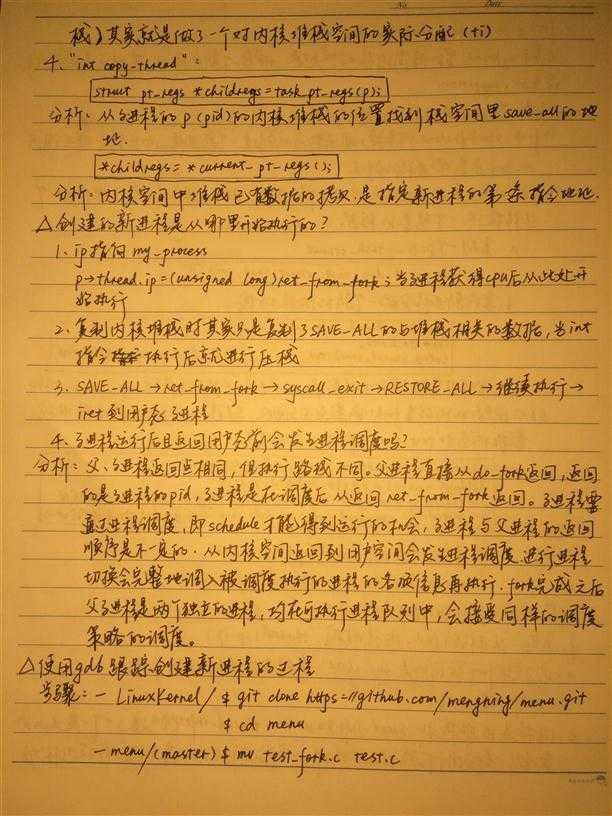 No.
Date
栈)其实就是做了一个对内核堆栈空间的实际分配 (ti)
4、"int copy-thread":
struct pt_regs *childregs = task_pt_regs(p);
分析:从子进程的p(pid)的内核堆栈的位置找到栈空间里save_all的地
址.
*childregs = *current_pt_regs();
分析:内核空间中堆栈已有数据的拷贝.是指定新进程的第一条指令地址.
△创建的新进程是从哪里开始执行的?
1、ip指向 my_process
p→thread.ip=(unsigned long)ret_from_fork;当子进程获得cpu后从此处开
始执行
2、复制内核堆栈时其实只是复制了SAVE_ALL的与堆栈相关的数据,当int
指令执行后就进行压栈
3、SAVE_ALL→ret_from_fork→syscall_exit→RESTORE_ALL→继续执行→
iret到用户态子进程
4、子进程运行后且返回用户态前会发生进程调度吗?
分析:父、子进程返回点相同,但执行路线不同。父进程直接从do_fork返回,返回
的是子进程的pid,子进程是在调度后从返回ret_from_fork返回。子进程要
通过进程调度,即schedule才能得到运行的机会,子进程与父进程的返回
顺序是不一定的.从内核空间返回到用户空间会发生进程调度.进行进程
切换会完整地调入被调度执行的进程的各项信息再执行.fork完成之后
父子进程是两个独立的进程,均在可执行进程队列中,会接受同样的调度
策略的调度。
△使用gdb跟踪创建新进程的过程
步骤:— LinuxKernel/ $ git clone https://github.com/mengning/menu.git
$ cd menu
— menu/(master) $ mv test_fork.c test.c